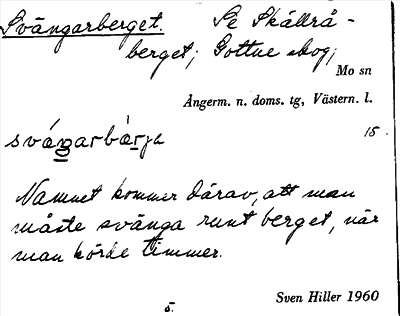 Svängarberget. Se Skällrå-
berget; Gottne skog;
Mo sn
Ångerm. n. doms. tg, Västern. l.
15.
Namnet kommer därav, att man
måste svänga runt berget, när
man körde timmer.
5.
Sven Hiller 1960